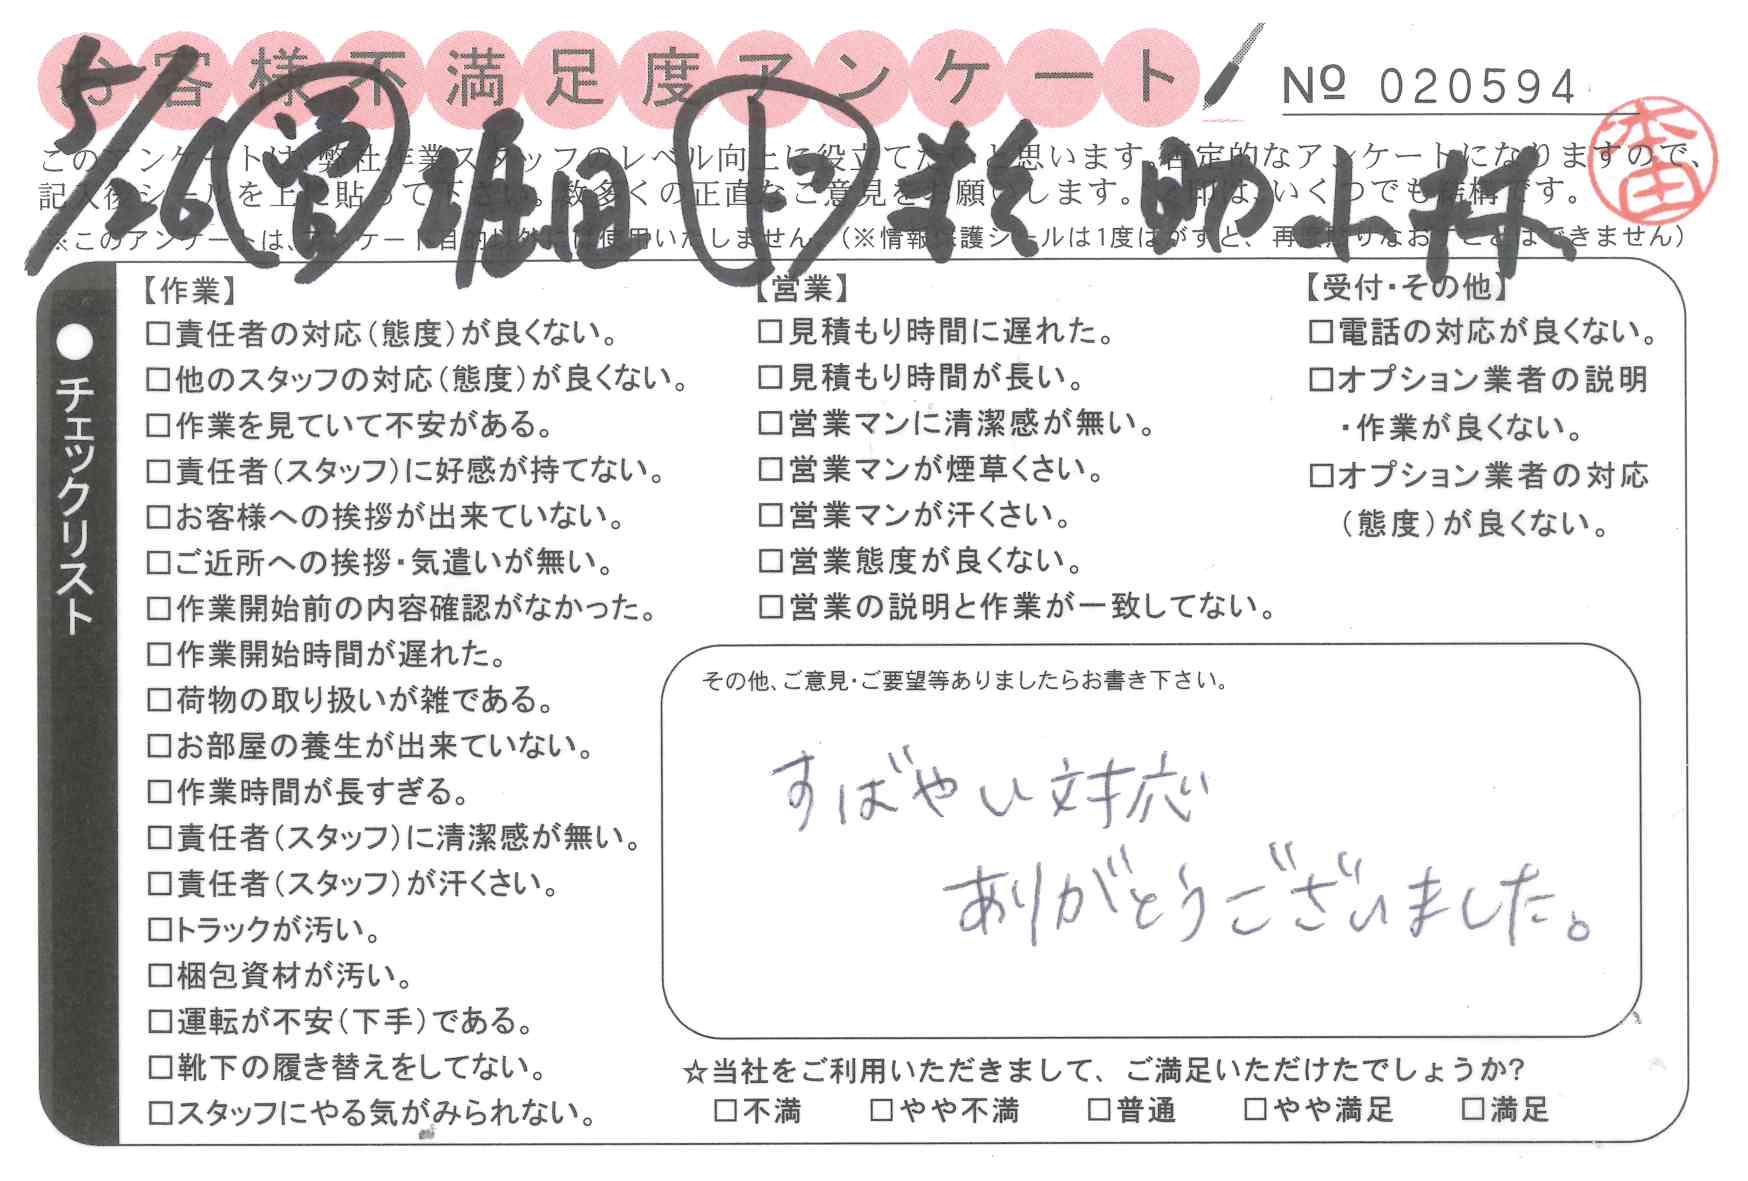 お客様不満足度アンケート
№ 020594
5/26 営 堀田 ト
小林
このアンケートは、弊社作業スタッフのレベル向上に役立てたいと思います。否定的なアンケートになりますので、
記入後シールを上に貼って下さい。数多くの正直なご意見をお願いします。(印は、いくつでも結構です。
※このアンケートは、アンケート目的以外には使用いたしません。(※情報保護シールは1度はがすと、再度貼りなおすことはできません)
●チェックリスト
【作業】
□責任者の対応(態度)が良くない。
□他のスタッフの対応(態度)が良くない。
□作業を見ていて不安がある。
□責任者(スタッフ)に好感が持てない。
□お客様への挨拶が出来ていない。
□ご近所への挨拶・気遣いが無い。
□作業開始前の内容確認がなかった。
□作業開始時間が遅れた。
□荷物の取り扱いが雑である。
□お部屋の養生が出来ていない。
□作業時間が長すぎる。
□責任者(スタッフ)に清潔感が無い。
□責任者(スタッフ)が汗くさい。
□トラックが汚い。
□梱包資材が汚い。
□運転が不安(下手)である。
□靴下の履き替えをしてない。
□スタッフにやる気がみられない。
【営業】
□見積もり時間に遅れた。
□見積もり時間が長い。
□営業マンに清潔感が無い。
□営業マンが煙草くさい。
□営業マンが汗くさい。
□営業態度が良くない。
□営業の説明と作業が一致してない。
【受付・その他】
□電話の対応が良くない。
□オプション業者の説明
・作業が良くない。
□オプション業者の対応
(態度)が良くない。
その他、ご意見・ご要望等ありましたらお書き下さい。
すばやい対応
ありがとうございました。
☆当社をご利用いただきまして、ご満足いただけたでしょうか?
□不満 □やや不満 □普通 □やや満足 □満足